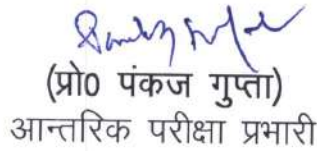 (प्रो0 पंकज गुप्ता)
आन्तरिक परीक्षा प्रभारी